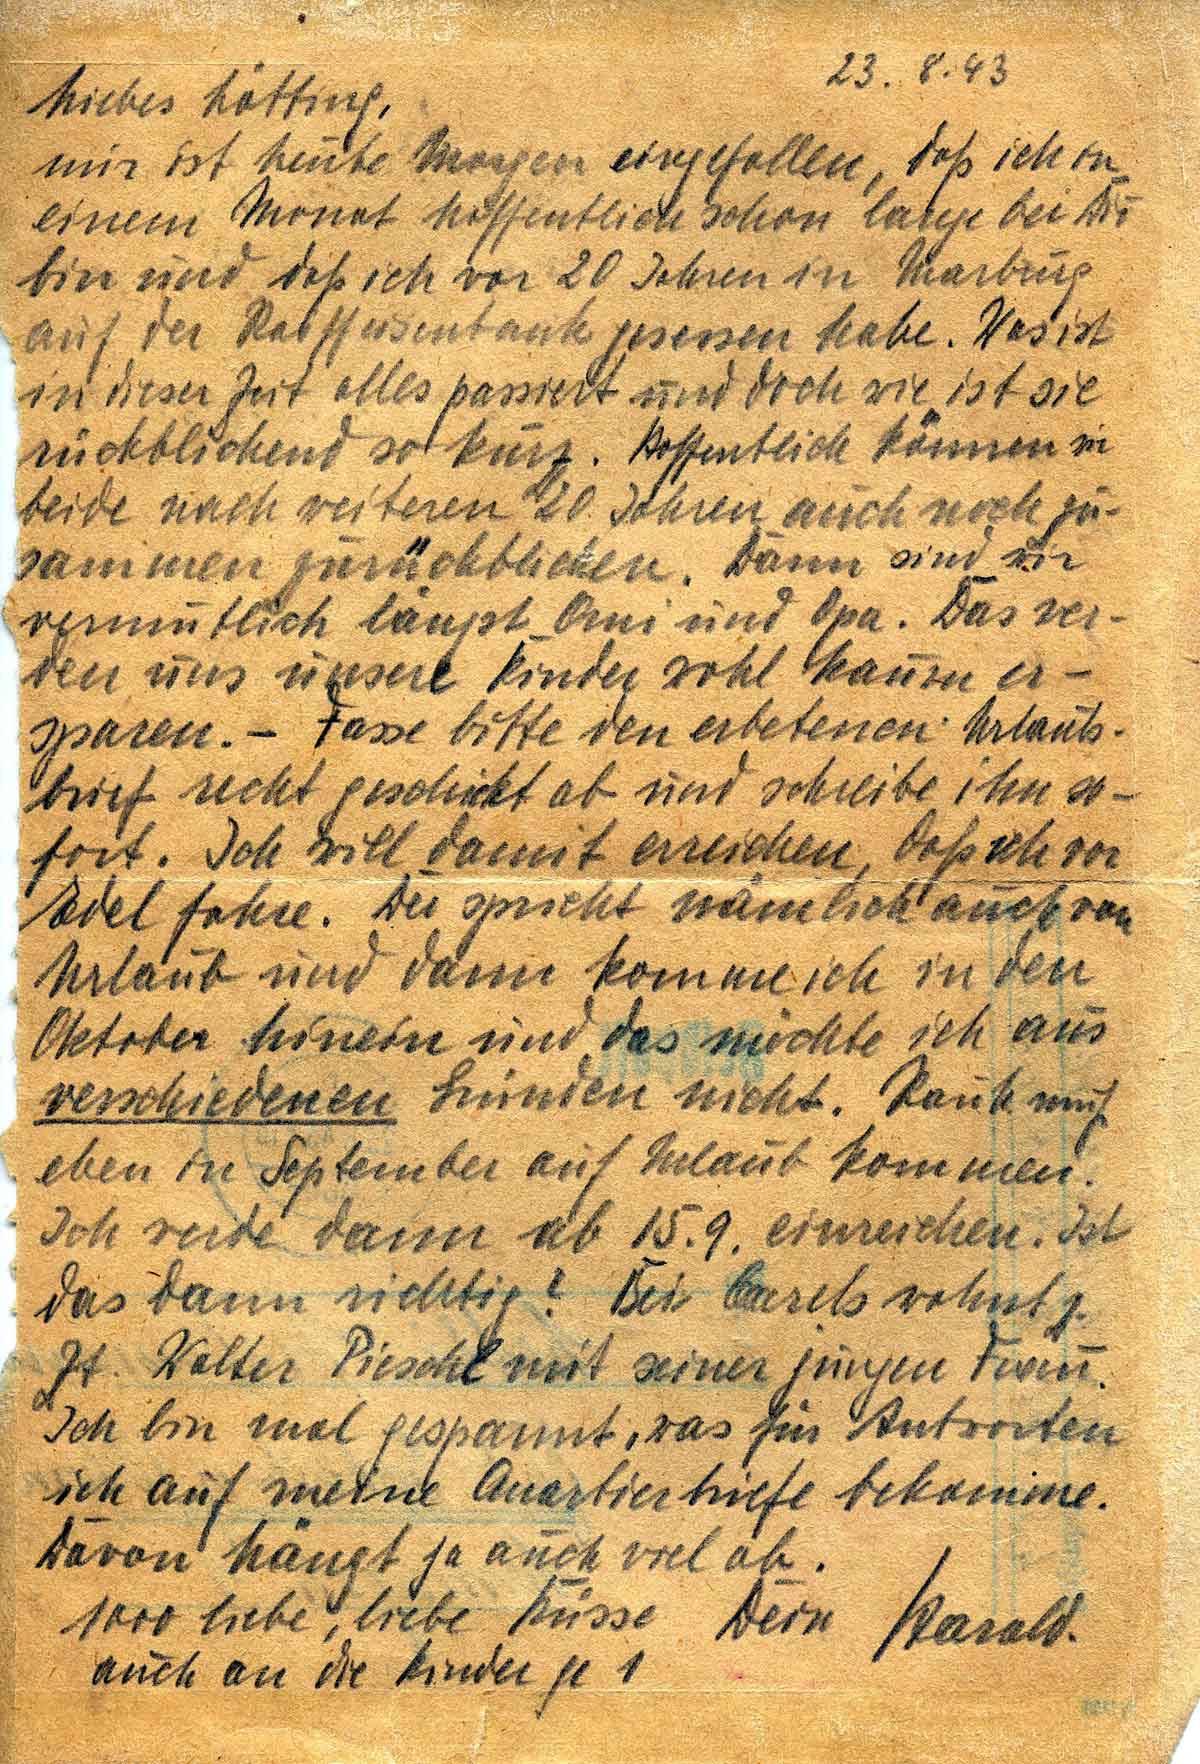 23. 8. 43
Liebes Lötting,
mir ist heute Morgen eingefallen, daß ich in
einem Monat hoffentlich schon lange bei Dir
bin und daß ich vor 20 Jahren in Marburg
auf der Raiffeisenbank gesessen habe. Was ist
in dieser Zeit alles passiert und doch wie ist sie
rückblickend so kurz. Hoffentlich können wir
beide nach weiteren 20 Jahren auch noch zu-
sammen zurückblicken. Dann sind wir
vermutlich längst Omi und Opa. Das wer-
den uns unsere Kinder wohl kaum er-
sparen. – Fasse bitte den erbetenen Urlaubs-
brief recht geschickt ab und schreibe ihn so-
fort. Ich will damit erreichen, daß ich vor
Edel fahre. Der spricht nämlich auch von
Urlaub und dann komme ich in den
Oktober hinein und das möchte ich aus
verschiedenen Gründen nicht. Rauh muß
eben in September auf Urlaub kommen.
Ich werde dann ab 15.9. einreichen. Ist
das dann richtig? Bei wohnt z.
Zt. Walter Pieschl mit seiner jungen Frau.
Ich bin mal gespannt, was für Antworten
ich auf meine Quartierbriefe bekomme.
Davon hängt ja auch viel ab.
1000 liebe, liebe Küsse Dein Harald.
auch an die Kinder je 1